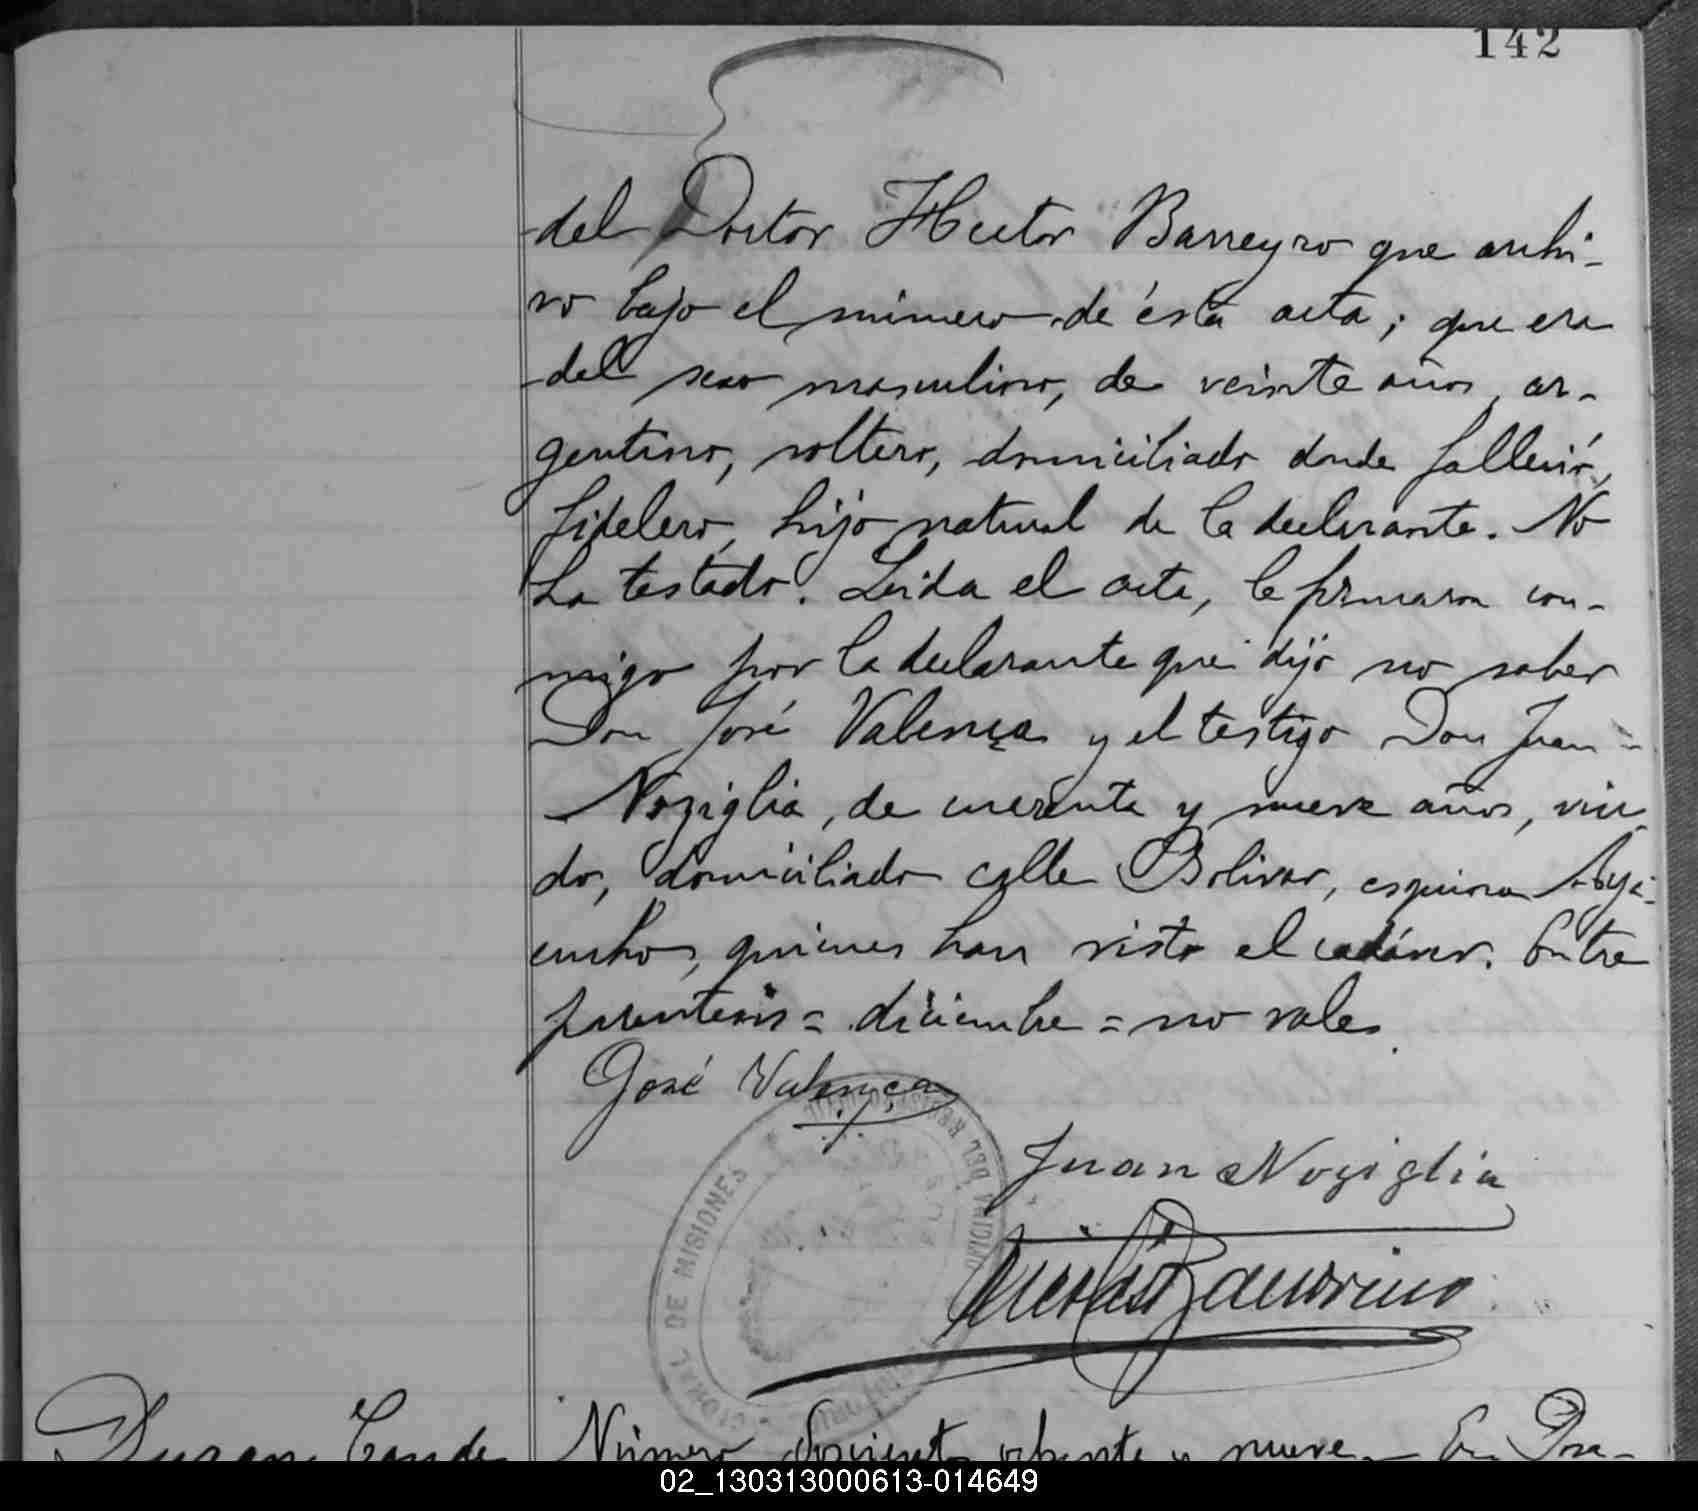 142
del Doctor Hector Barreyro que archi-
vo bajo el número de ésta acta; que era
del sexo masculino, de veinte años, ar-
gentino, soltero, domiciliado donde falleció,
fidelero, hijo natural de la declarante. No
ha testado. Leida el acta, la firmaron con-
migo por la declarante que dijo no saber
Don José Valença y el testigo Don Juan
Noziglia, de cuarenta y nueve años, viu-
do, domiciliado calle Bolivar, esquina Aya-
cucho, quienes han visto el cadáver. Entre
parentesis = diciembre = no vale.
José Valença
Juan Noziglia
DE MISIONES
OFICINA DEL REGISTRO
Duran, Conde
Número Doscientos ochenta y nueve - En Posa-
02_130313000613-014649